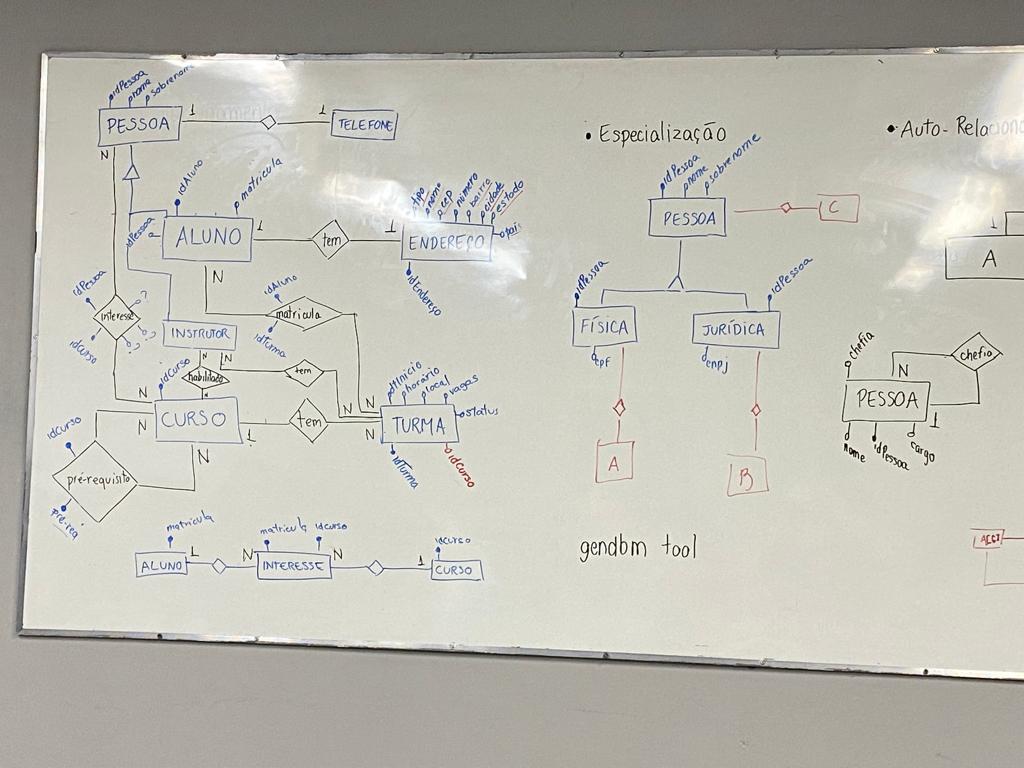 idPessoa
nome
sobrenome
PESSOA
1
1
TELEFONE
N
idAluno
matricula
idPessoa
ALUNO
1
tem
1
tipo
nome
cep
número
bairro
cidade
estado
ENDEREÇO
idEndereço
N
idAluno
matricula
idTurma
idPessoa
?
interesse
?
?
idCurso
INSTRUTOR
N
N
habilitado
N
tem
N
N
idCurso
N
CURSO
1
tem
N
N
dtInicio
horário
local
vagas
status
TURMA
idTurma
idCurso
N
idCurso
pré-requisito
pré-req
matricula
ALUNO
1
N
matricula
idcurso
INTERESSE
N
1
idcurso
CURSO
• Especialização
idPessoa
nome
sobrenome
PESSOA
C
idPessoa
FÍSICA
cpf
A
idPessoa
JURÍDICA
cnpj
B
gendbm tool
• Auto-Relaciona
1
A
chefia
N
chefia
PESSOA
1
nome
idPessoa
cargo